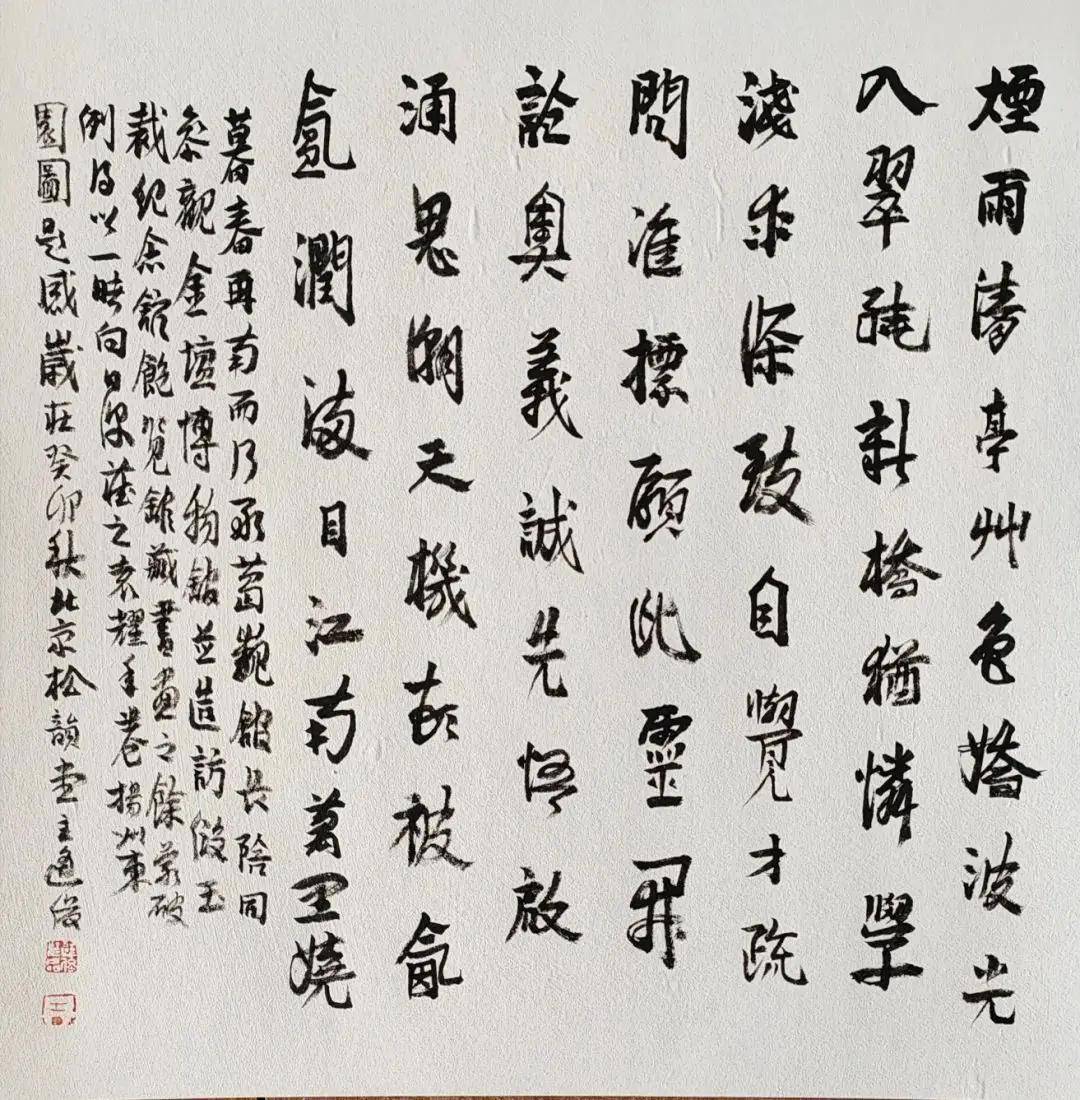 煙雨濤亭艸色嬌波光
入翠疏新橋猶憐學
淺求深致自慚覺才疏
問准標願此靈犀
詮奧義誠先悟啟
涌思潮天機在被氤
氳潤滿目江南萬里嬈
暮春再南而行承葛巍館長陪同
參觀金壇博物館並造訪段玉
裁紀念館飽覽館藏書畫之餘蒙破
例得以一睹向日深藏之袁耀手卷揚州東
園圖題感歲在癸卯秋北京松韻堂主逸俊